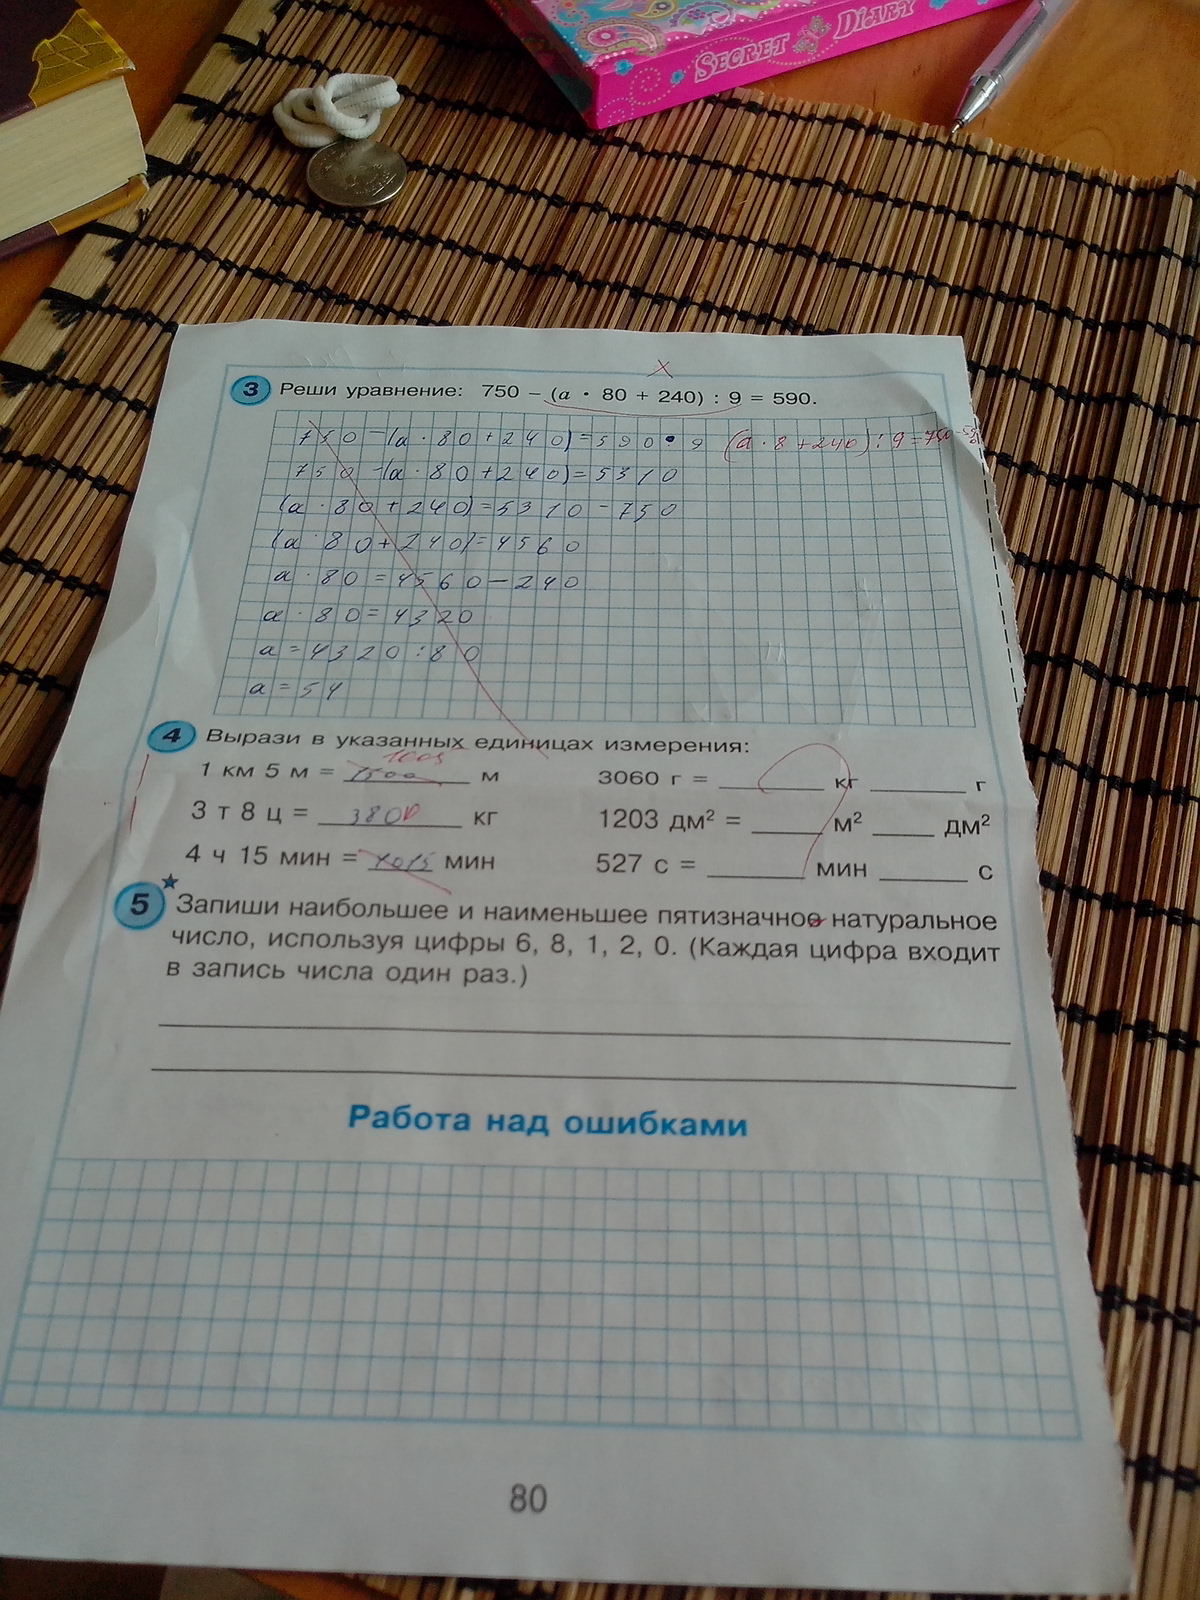 SECRET DIARY
x
3 Реши уравнение: 750 – (a · 80 + 240) : 9 = 590.
750 - (a · 80 + 240) = 590 · 9 (a · 8 + 240) : 9 = 750 - 590
750 - (a · 80 + 240) = 5310
(a · 80 + 240) = 5310 - 750
(a · 80 + 240) = 4560
a · 80 = 4560 - 240
a · 80 = 4320
a = 4320 : 80
a = 54
4 Вырази в указанных единицах измерения:
1005
1 км 5 м = 1500 м 3060 г = ____ кг ____ г
3 т 8 ц = 3800 кг 1203 дм² = ____ м² ____ дм²
4 ч 15 мин = 4015 мин 527 с = ____ мин ____ с
5* Запиши наибольшее и наименьшее пятизначное натуральное
число, используя цифры 6, 8, 1, 2, 0. (Каждая цифра входит
в запись числа один раз.)
Работа над ошибками
80